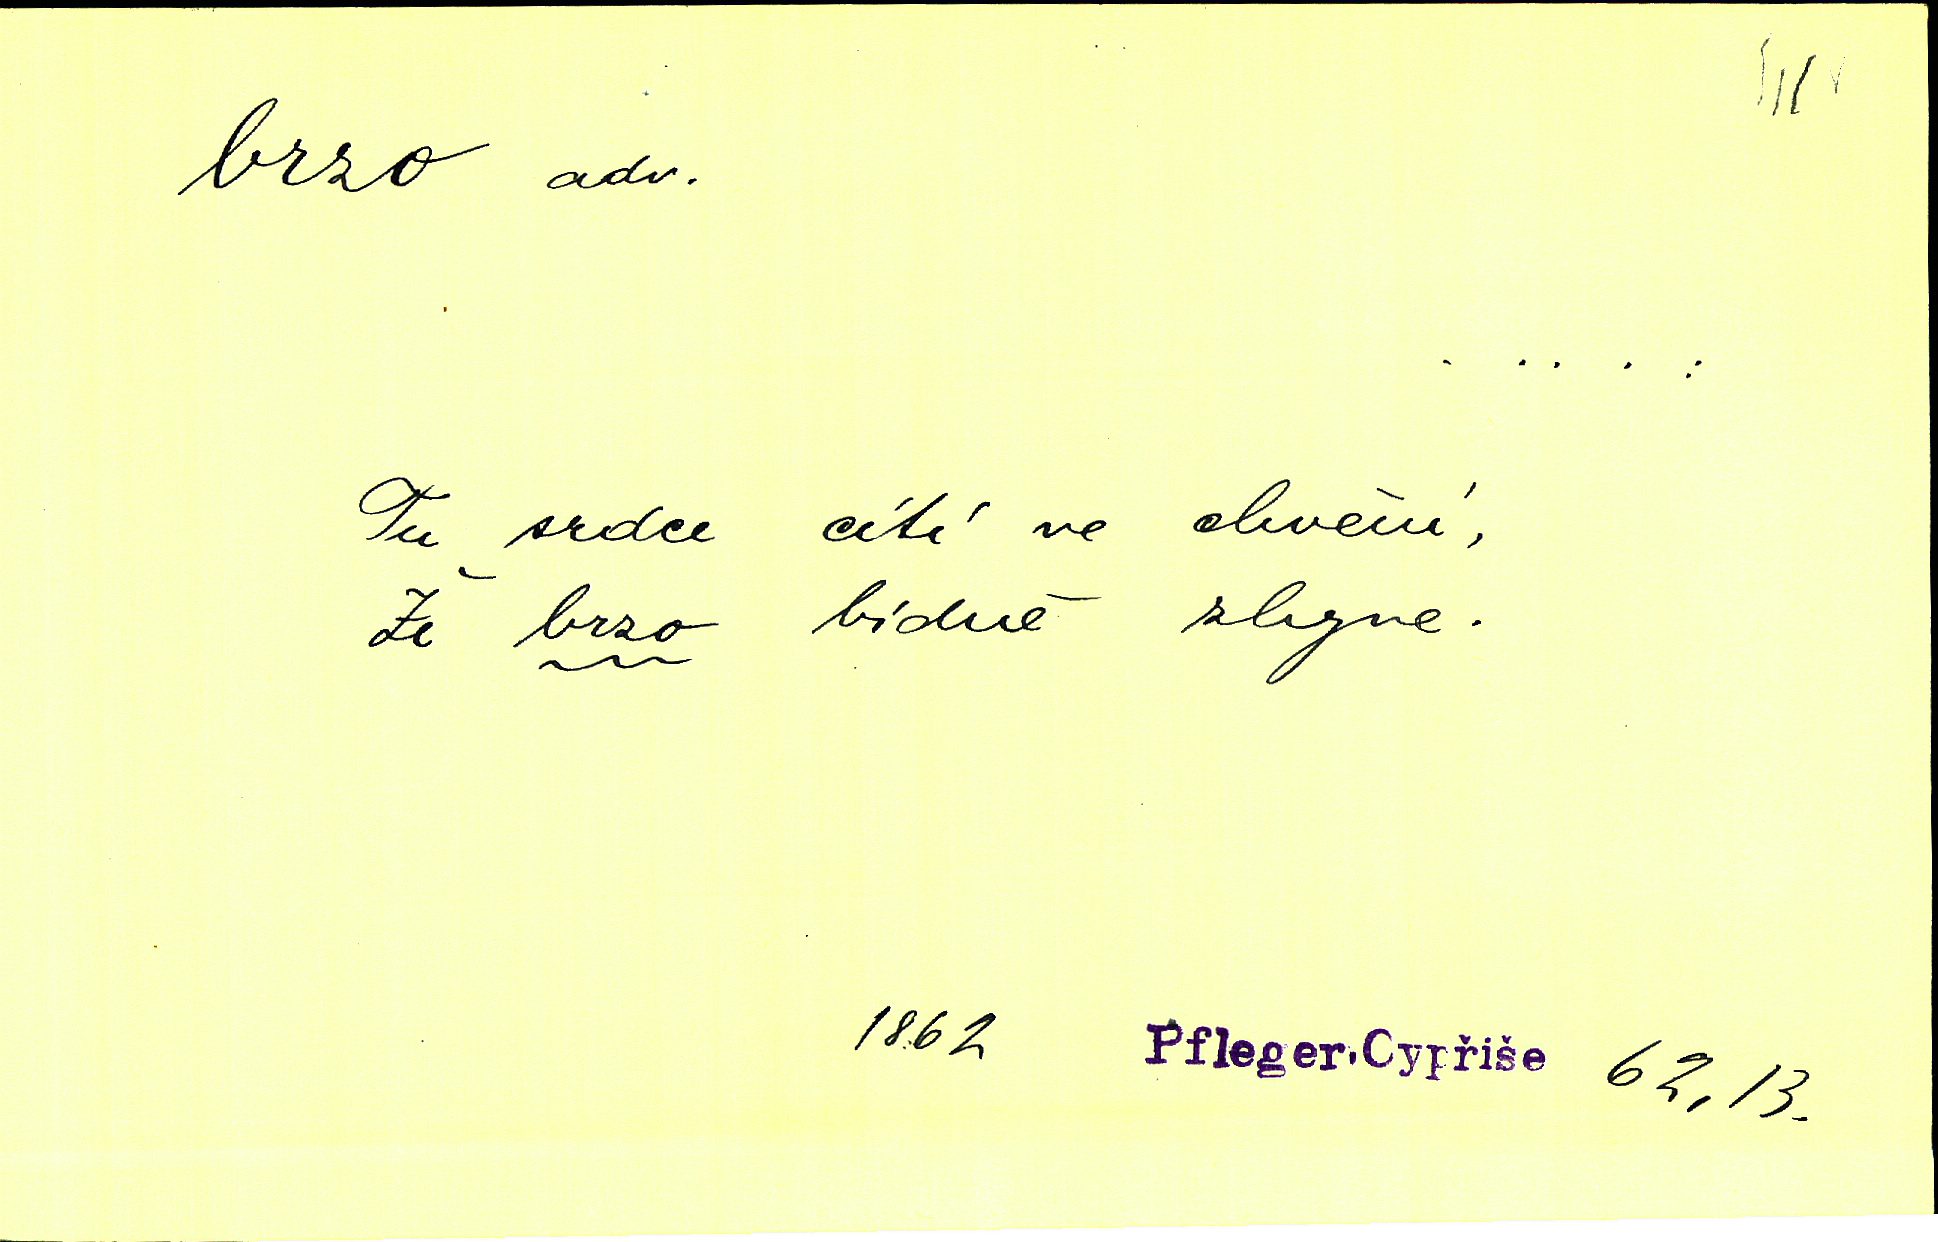 brzo adv.
. . . . :
Tu srdce cítí ve chvění,
Že brzo bídně zhyne.
1862 Pfleger, Cypřiše 62, 13.